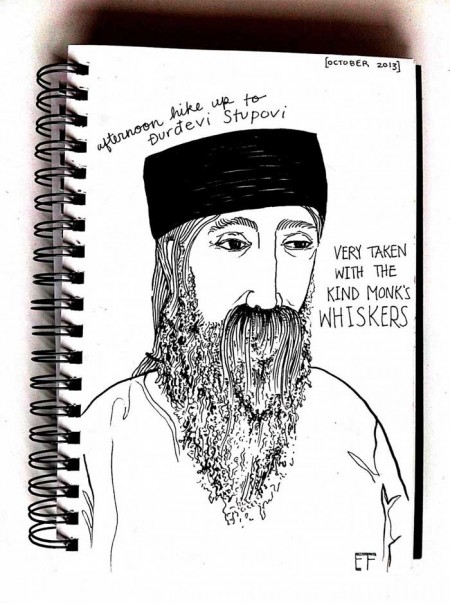 [OCTOBER 2013]
afternoon hike up to
Đurđevi Stupovi
VERY TAKEN
WITH THE
KIND MONK'S
WHISKERS
EF